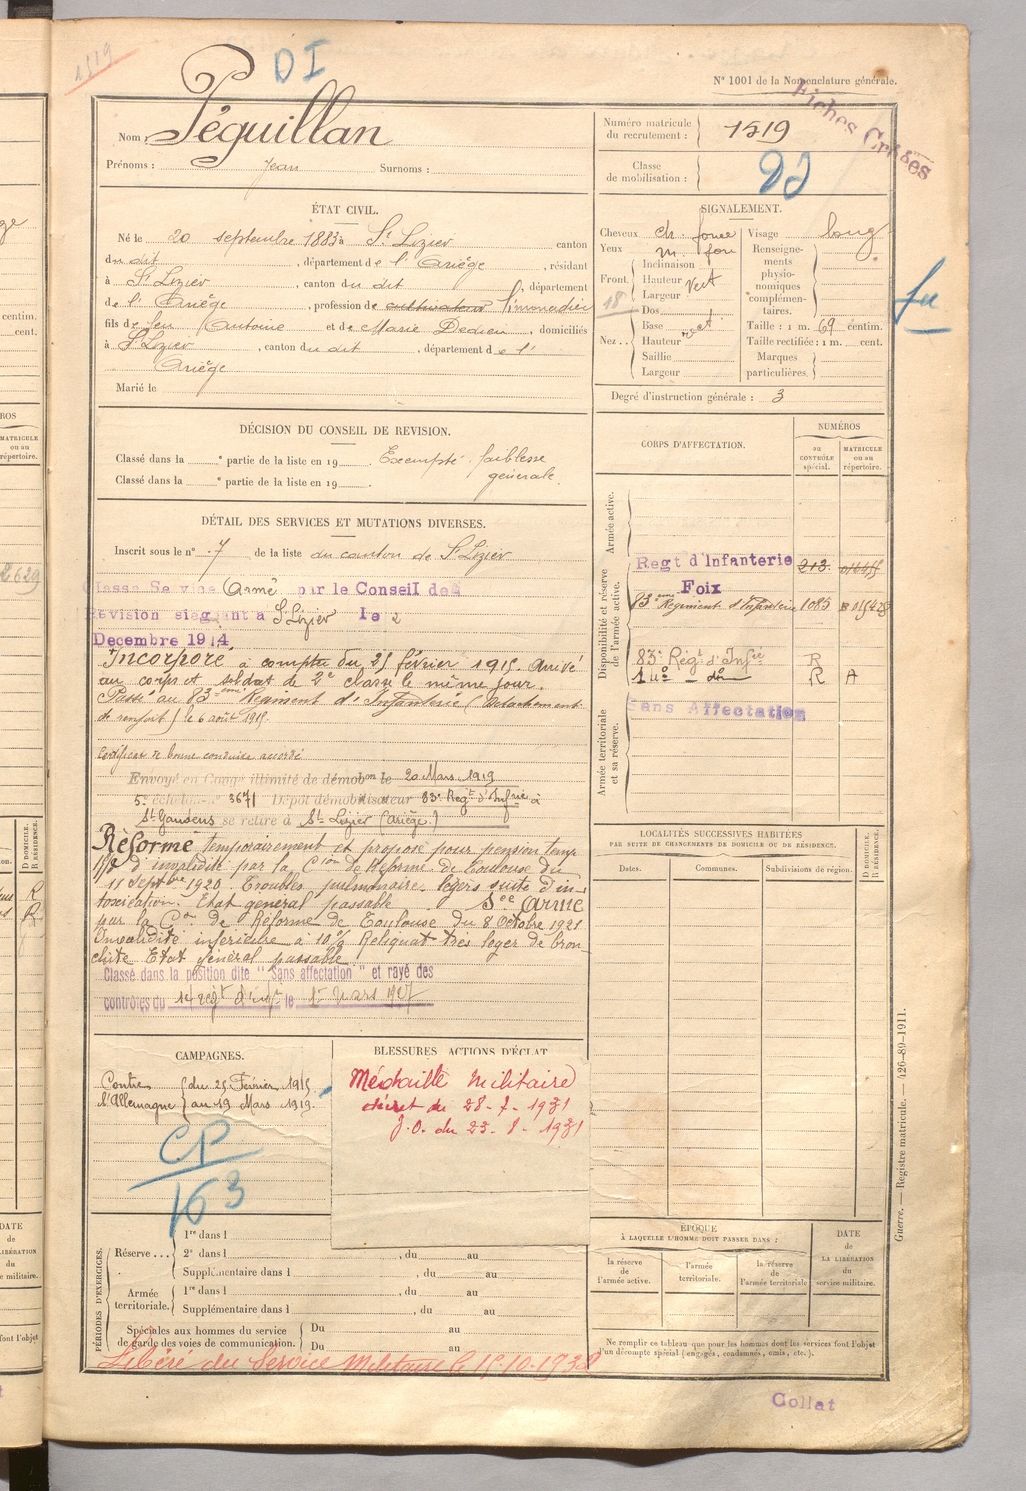 1519
DI
N° 1001 de la Nomenclature générale.
Fiches Croisées
Nom : Péguillan
Prénoms : Jean Surnoms :
Numéro matricule du recrutement : 1519
Classe de mobilisation :
ÉTAT CIVIL.
Né le 20 septembre 1883 à St Lizier canton
du dit, département de l'Ariège, résidant
à St Lizier, canton du dit, département
de l'Ariège, profession de cultivateur limonadier
fils de feu Antoine et de Marie Dedieu, domiciliés
à St Lizier, canton du dit, département de l'
Ariège
Marié le
SIGNALEMENT.
Cheveux ch. foncé
Yeux m. fon
Front.
Inclinaison
Hauteur Vert
Largeur
18
Nez..
Dos
Base
Hauteur
Saillie
Largeur
Visage long
Renseignements physionomiques complémentaires.
Taille : 1 m. 69 centim.
Taille rectifiée : 1 m. cent.
Marques particulières.
Degré d'instruction générale : 3
DÉCISION DU CONSEIL DE REVISION.
Classé dans la e partie de la liste en 19 Exempté faiblesse
Classé dans la e partie de la liste en 19 générale.
DÉTAIL DES SERVICES ET MUTATIONS DIVERSES.
Inscrit sous le n° 7 de la liste du canton de St Lizier
Classé Service Armé par le Conseil de
Révision siégeant à St Lizier le 2
Decembre 1914
Incorporé à compter du 25 février 1915. Arrivé
au corps et soldat de 2e classe le même jour.
Passé au 83ème Régiment d'Infanterie (détachement
de renfort) le 6 août 1915.
Certificat de bonne conduite accordé
Envoyé en Congé illimité de démobon le 20 Mars 1919
5e échelon n° 3671 Dépôt démobilisateur 83e Regt d'Infrie à
St Gaudens se retire à St Lizier (Ariège.)
Réformé temporairement et proposé pour pension temp
d'invalidité par la Cion de Réforme de Toulouse du
11 Septbre 1920. Troubles pulmonaires légers suite d'in-
toxication. Etat général passable. Sce Armé
par la Con de Réforme de Toulouse du 8 Octobre 1921
Invalidité inférieure à 10% Reliquat très léger de bron
chite Etat général passable
Classé dans la position dite "Sans affectation" et rayé des
contrôles du 14 regt d'infie le 1er mars 1927
CORPS D'AFFECTATION.
NUMÉROS
au CONTRÔLE spécial.
MATRICULE ou au répertoire.
Armée active.
Disponibilité et réserve de l'armée active.
Regt d'Infanterie 213
Foix
83eme Régiment d'Infanterie 1085
83e Régt d'Infie R
14e do R A
Armée territoriale et sa réserve.
Sans Affectation
LOCALITÉS SUCCESSIVES HABITÉES
PAR SUITE DE CHANGEMENTS DE DOMICILE OU DE RÉSIDENCE.
Dates. Communes. Subdivisions de région.
D DOMICILE. R RÉSIDENCE.
CAMPAGNES.
Contre l'Allemagne
du 25 Février 1915
au 19 Mars 1919.
CP
163
BLESSURES ACTIONS D'ÉCLAT
Médaille Militaire
décret du 28-7-1931
J.O. du 23-8-1931
PÉRIODES D'EXERCICES.
Réserve...
1re dans l
2e dans l , du au
Supplémentaire dans l , du au
Armée territoriale.
1re dans l , du au
Supplémentaire dans l , du au
Spéciales aux hommes du service de garde des voies de communication.
Du au
Du au
Libéré du Service Militaire le 15-10-1932
ÉPOQUE
À LAQUELLE L'HOMME DOIT PASSER DANS :
la réserve de l'armée active.
l'armée territoriale.
la réserve de l'armée territoriale
DATE de LA LIBÉRATION du service militaire.
Ne remplir ce tableau que pour les hommes dont les services font l'objet
d'un décompte spécial (engagés, condamnés, omis, etc.).
Guerre. — Registre matricule. — 426-89-1911.
Collat